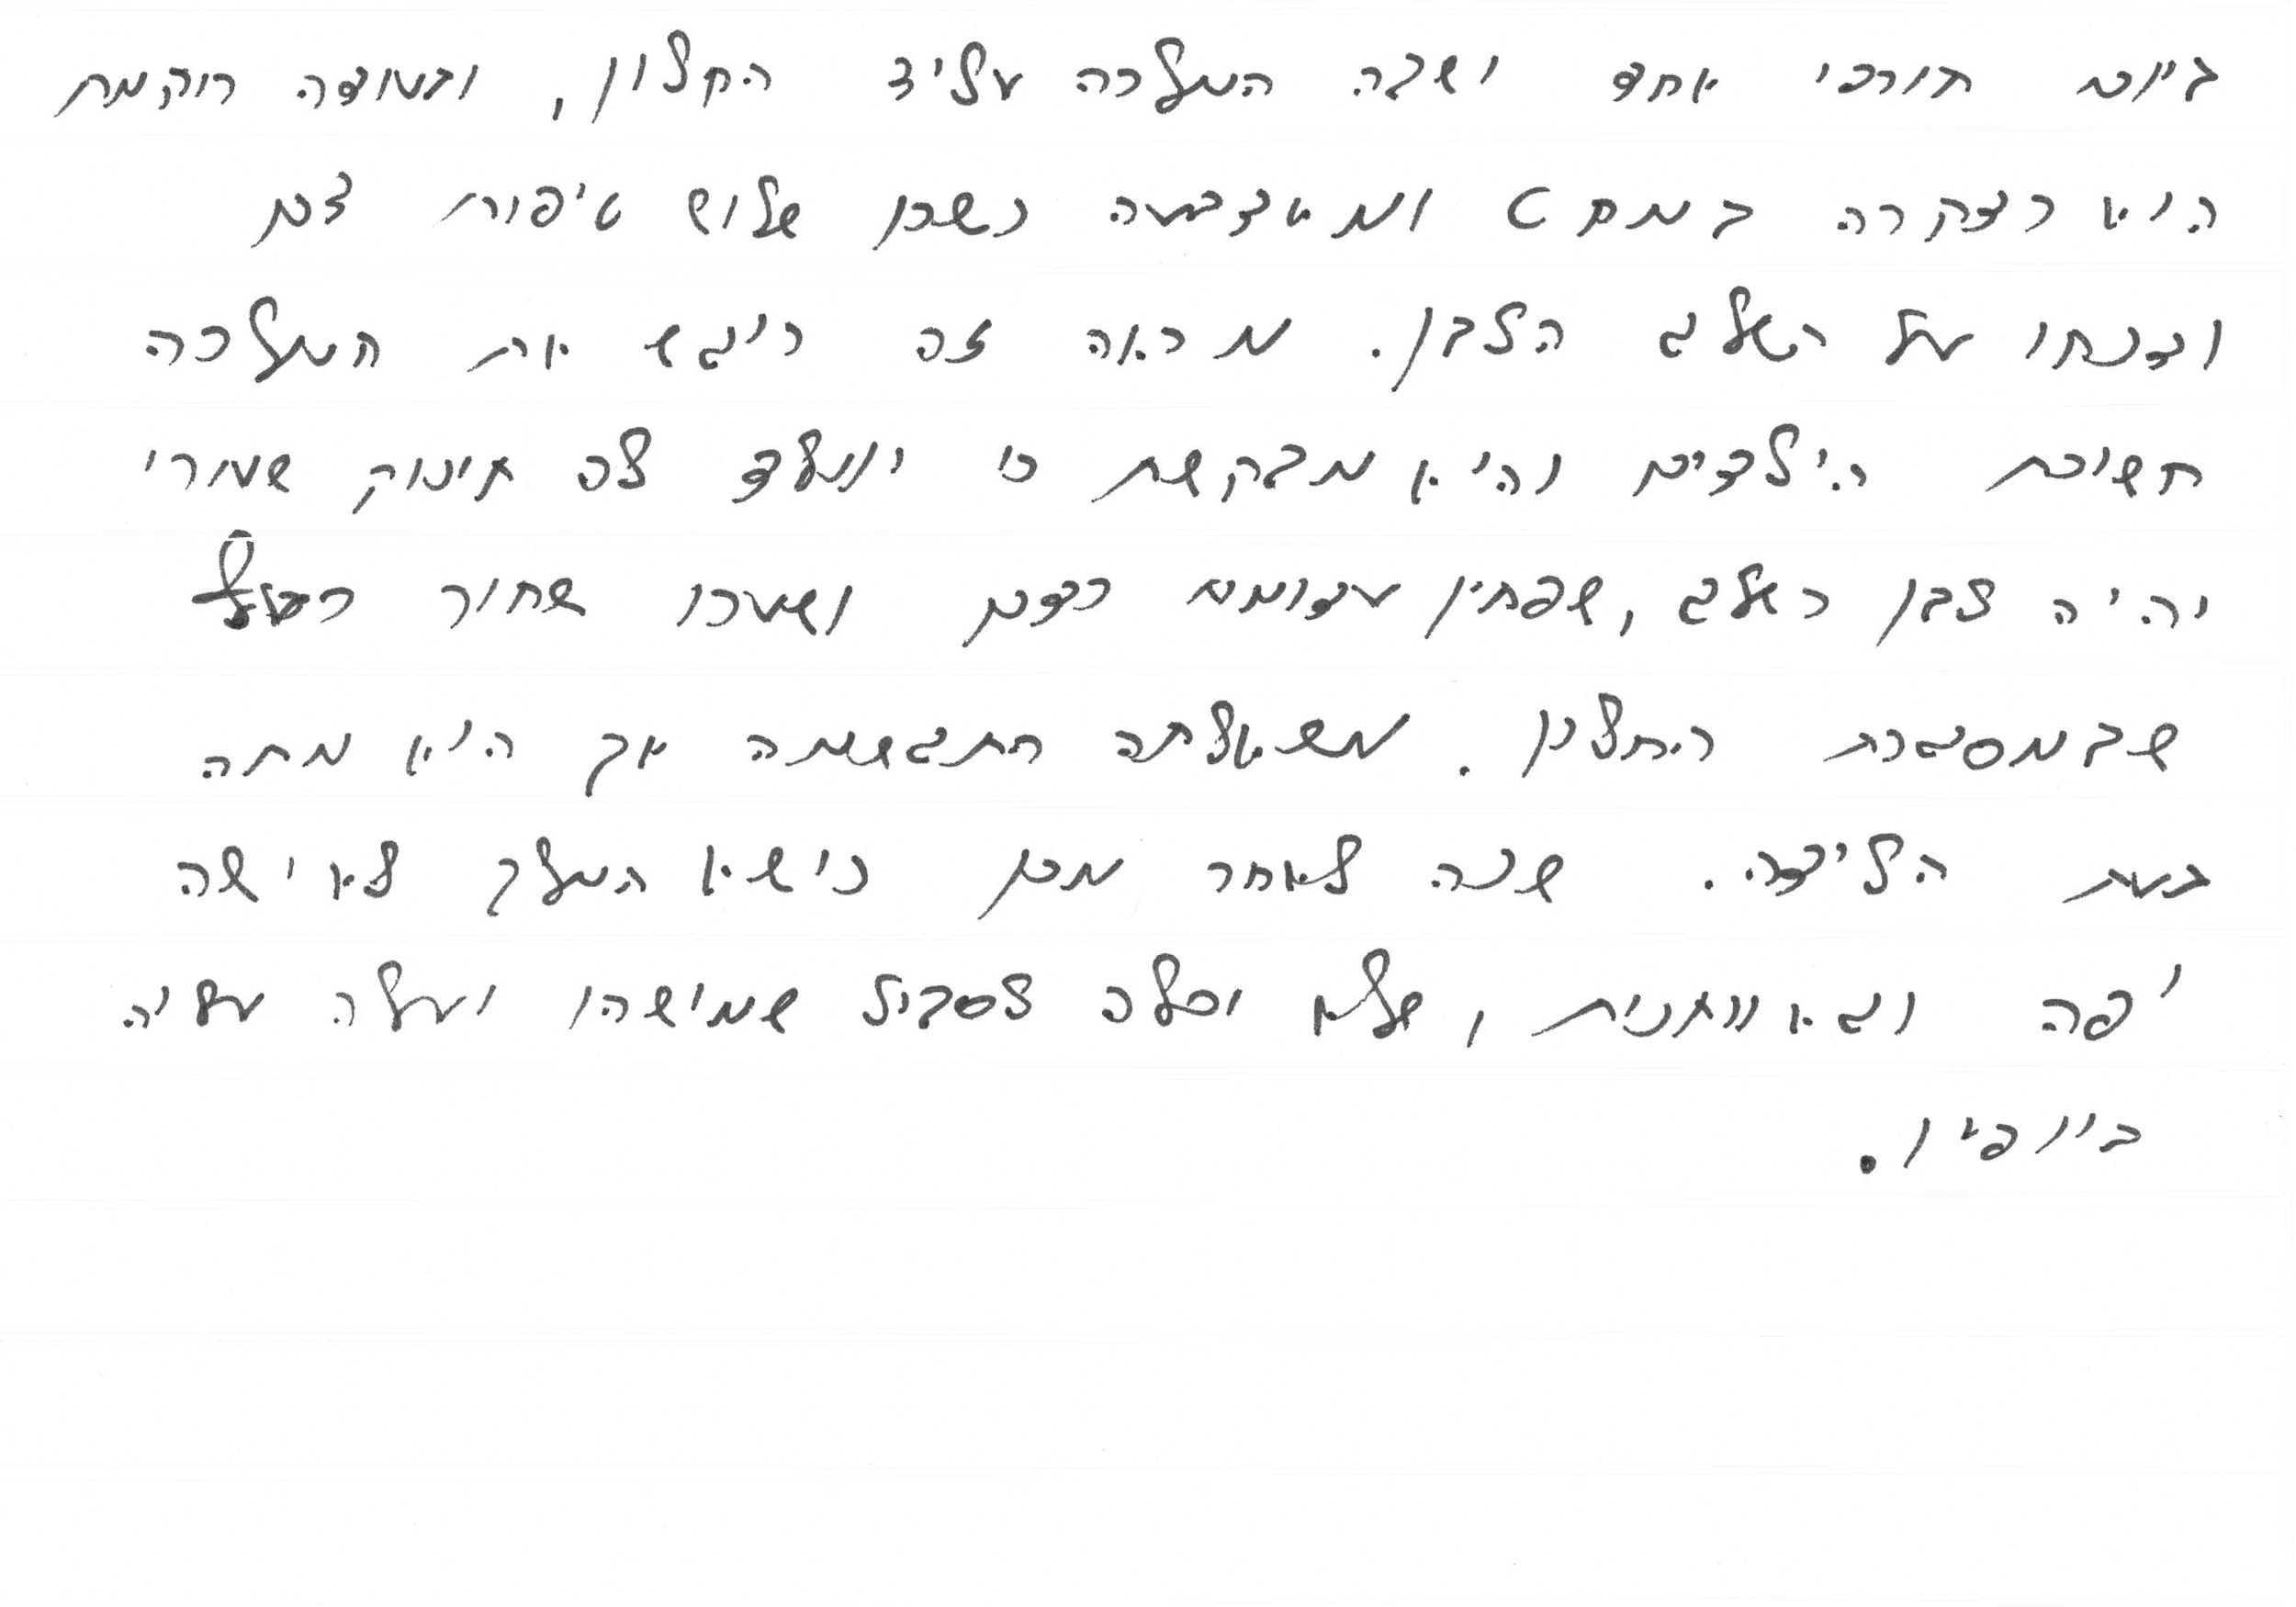 ביום חורפי אחד ישבה המלכה על יד החלון, ובעודה רוקמת
היא נדקרה במחט ומאצבעה נשרו שלוש טיפות דם
ונחו על השלג הלבן. מראה זה ריגש את המלכה
חשוכת הילדים והיא מבקשת כי ייוולד לה תינוק שעורו
יהיה לבן כשלג, שפתיו אדומות כדם ושערו שחור כעץ
שבמסגרת החלון. משאלתה התגשמה אך היא מתה
בעת הלידה. שנה לאחר מכן נישא המלך לאישה
יפה וגאוותנית, שלא יכלה לסבול שמישהו יעלה עליה
ביופיו.